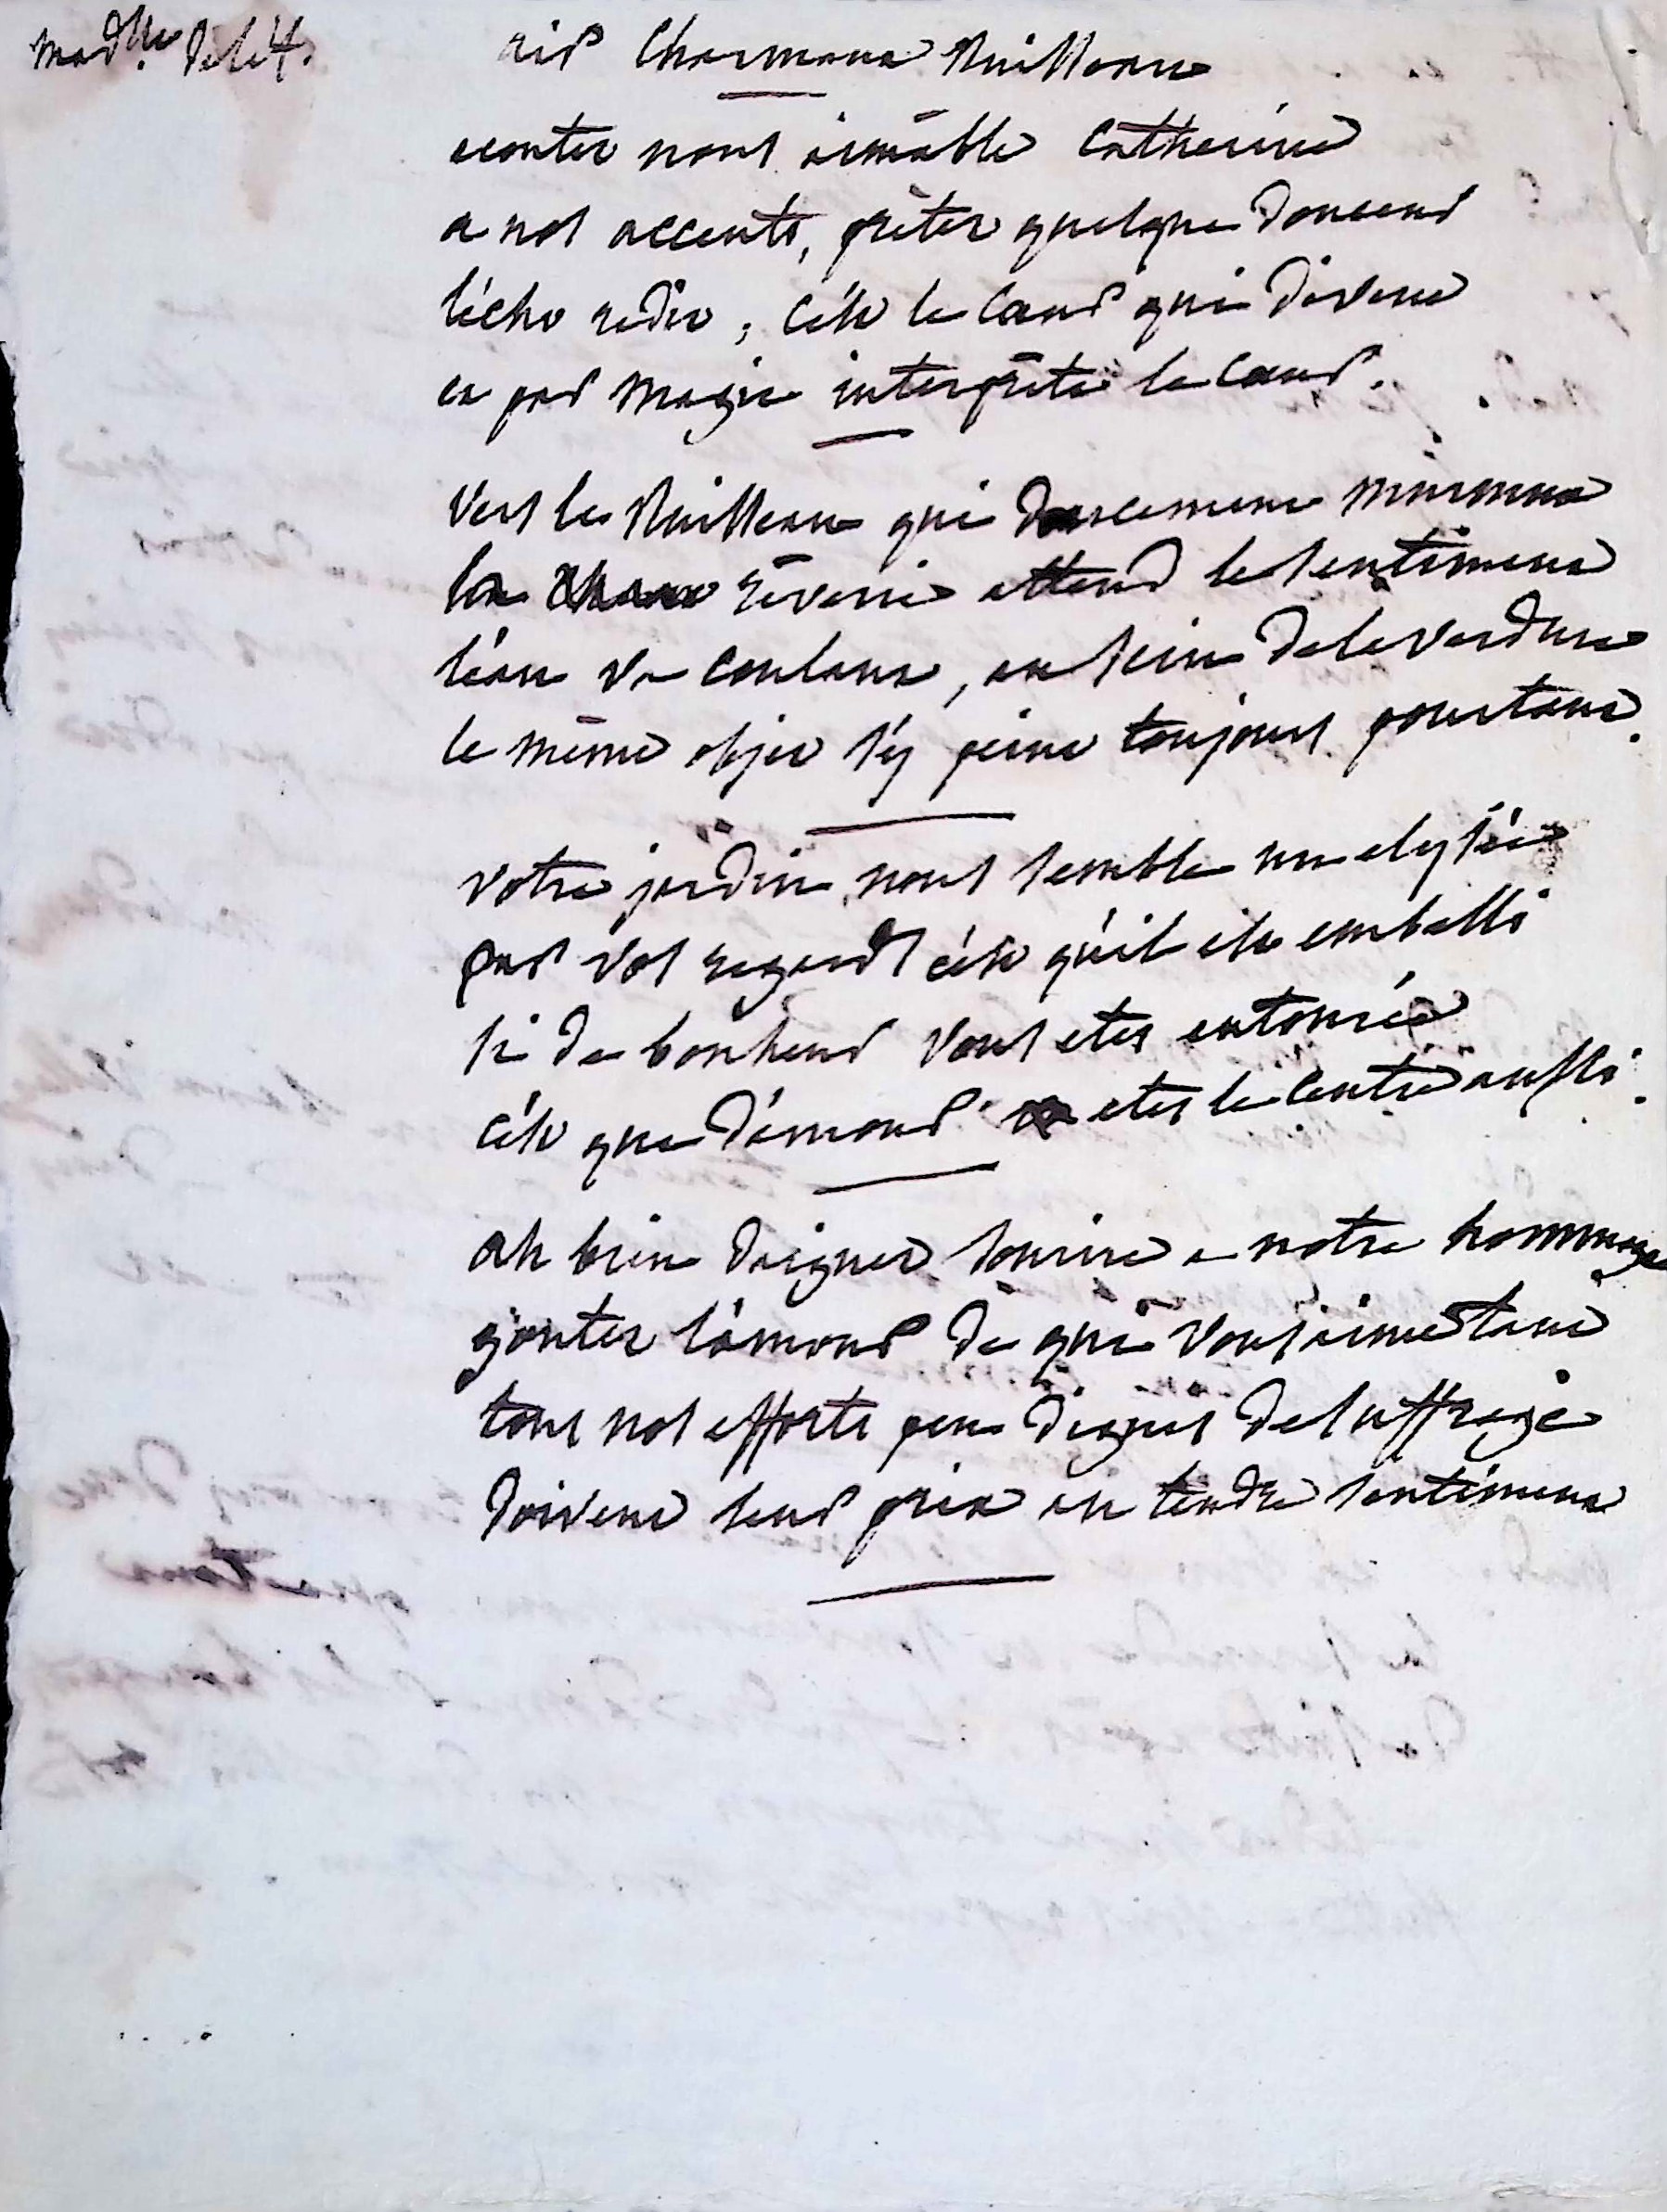 Mad.lle
air Charmant Ruisseau
ecoutez nous aimable Catherine
a nos accents, prêtez quelque douceur
l'écho redit, c'est le cœur qui devine
et par magie interprête le cœur.
Vers le Ruisseau qui doucement murmure
la rêverie attend le sentiment
l'eau va coulant, au sein de la verdure
le même objet s'y peint toujours pourtant.
votre jardin nous semble un elysée
par vos regards c'est qu'il est embelli
si de bonheur vous etes entourée
c'est que d'amour etes le centre aussi.
ah bien daignez sourire a notre hommage
goutez l'amour de qui vous aime tant
tous nos efforts peu dignes de suffrage
doivent leur prix au tendre sentiment